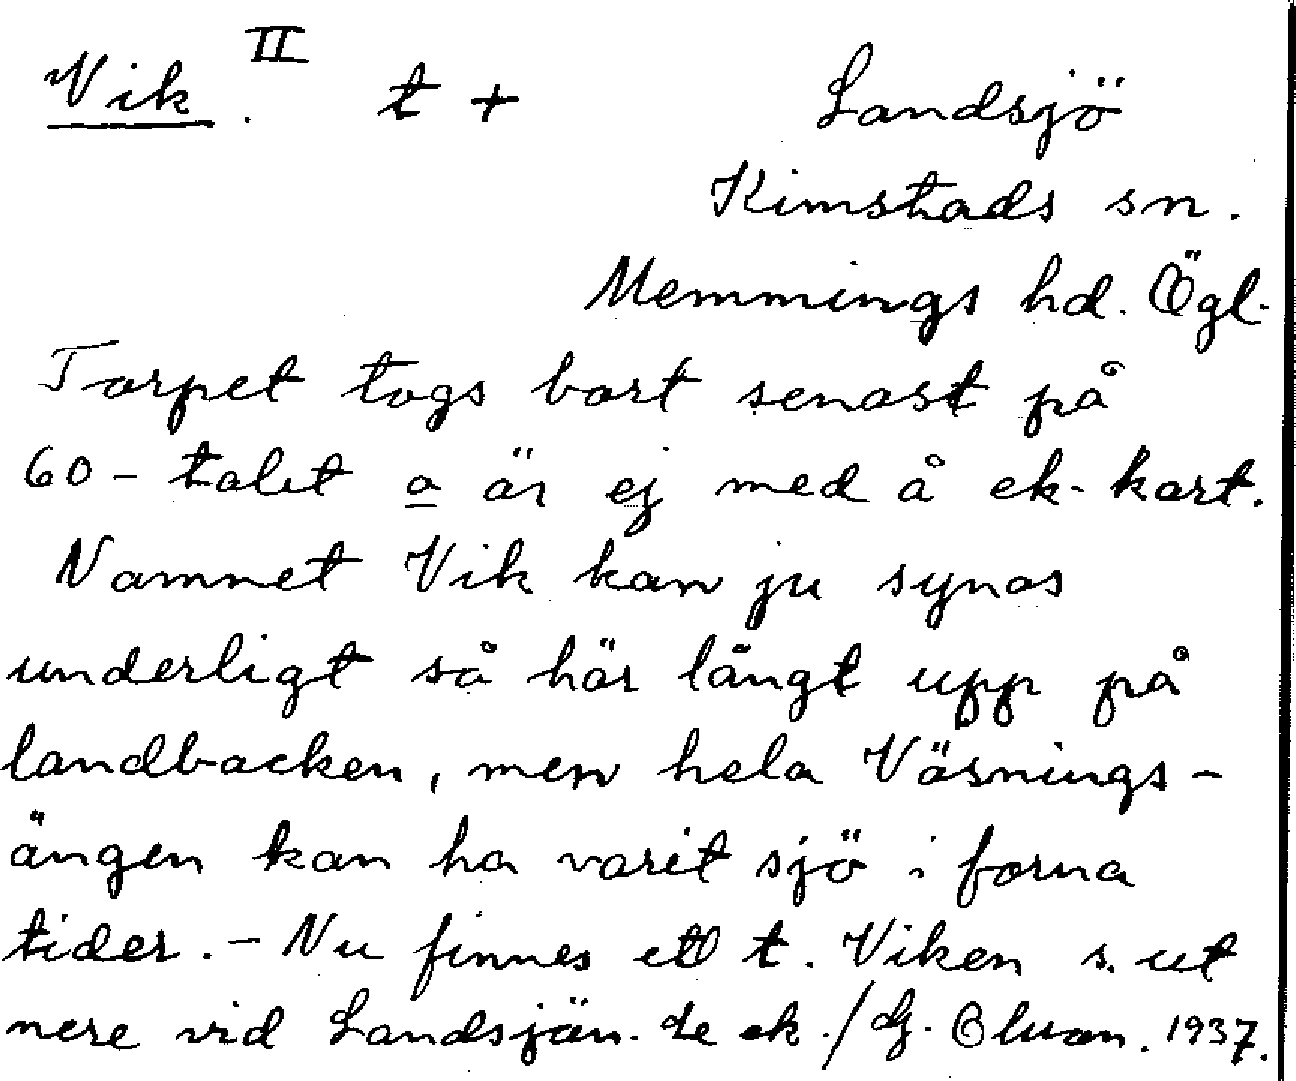 Vik. II t + Landsjö
Kimstads sn.
Memmings hd. Ögl.
Torpet togs bort senast på
60-talet o är ej med å ek. kart.
Namnet Vik kan ju synas
underligt så här långt upp på
landbacken, men hela Väsnings-
ängen kan ha varit sjö i forna
tider. - Nu finnes ett t. Viken s. ut
nere vid Landsjön. Se ek./ G.
1937.